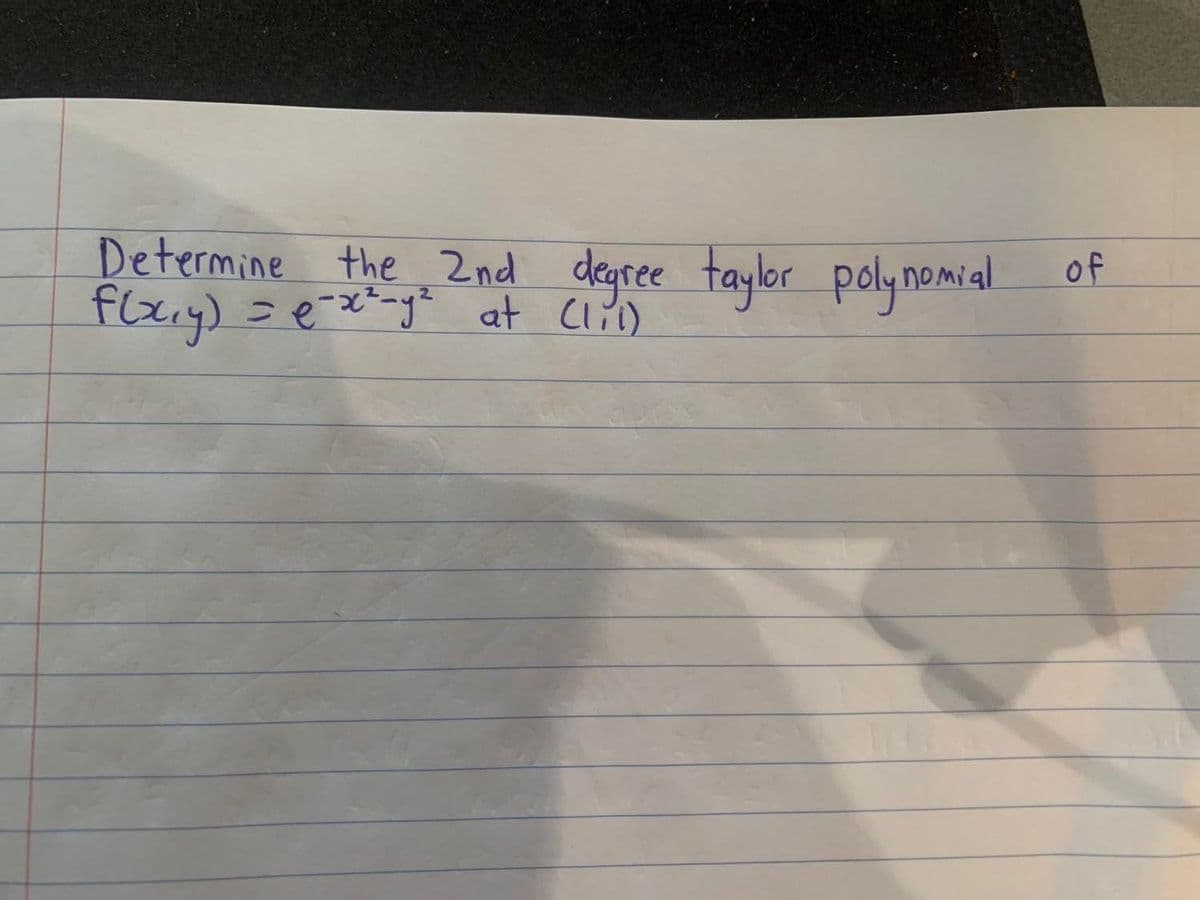 Determine the 2nd degree taylor polynomial of
f(x,y) = e^-x²-y² at (1,1)